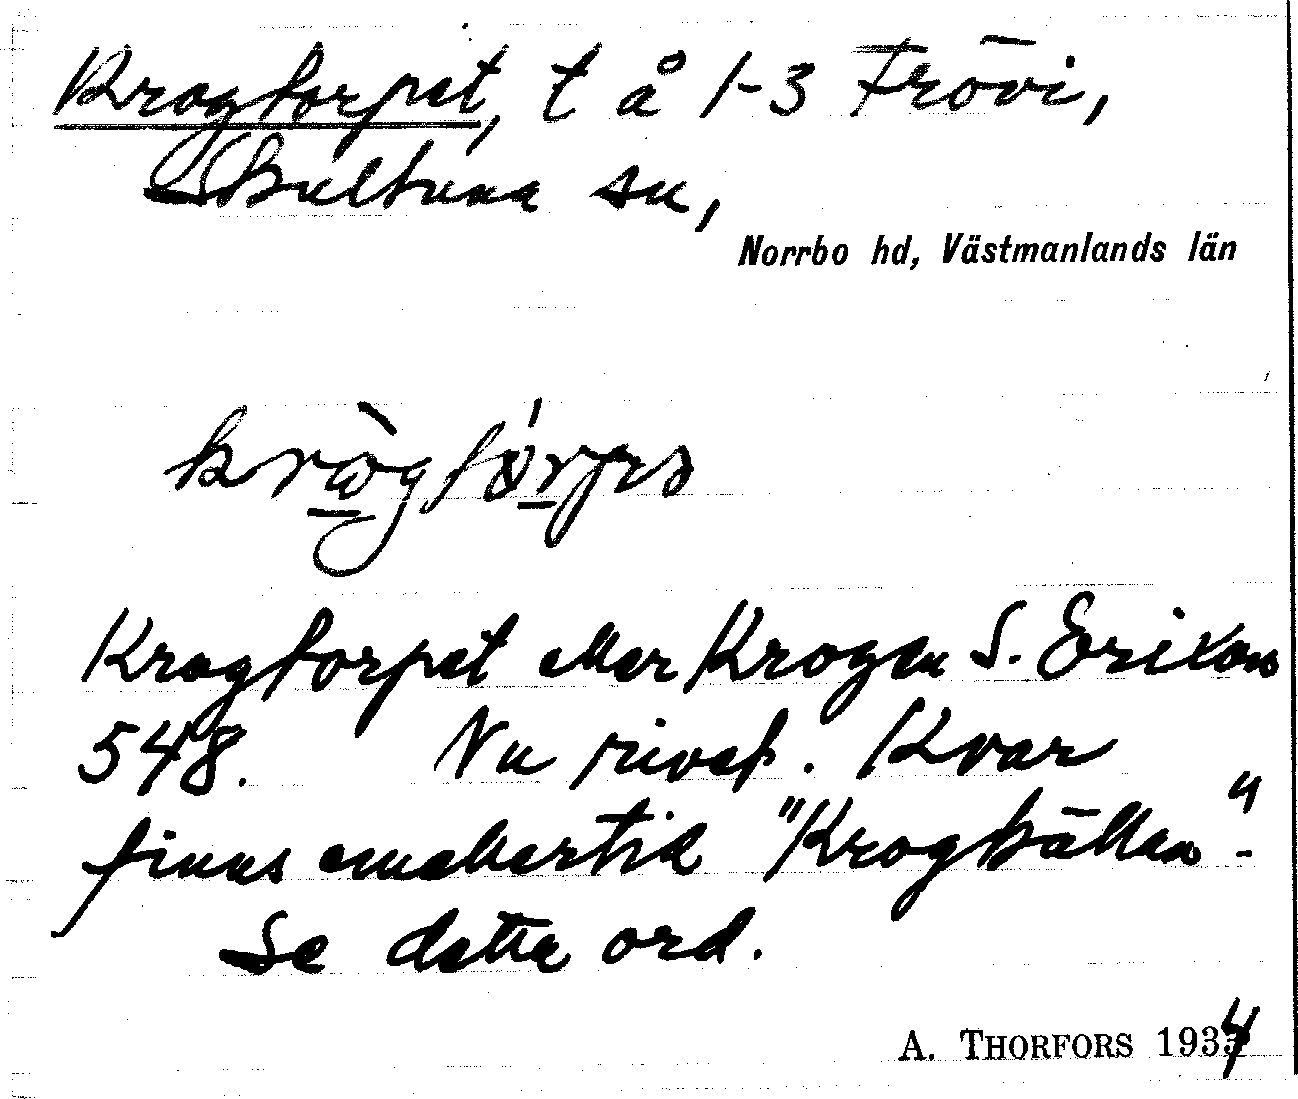 Krogtorpet, t å 1-3 Frövi,
Skultuna sn,
Norrbo hd, Västmanlands län
Krogtorpet eller Krogen S. Erixon
548. Nu rivet. Kvar
finns emellertid "Krogkällan".
Se detta ord.
A. THORFORS 1934